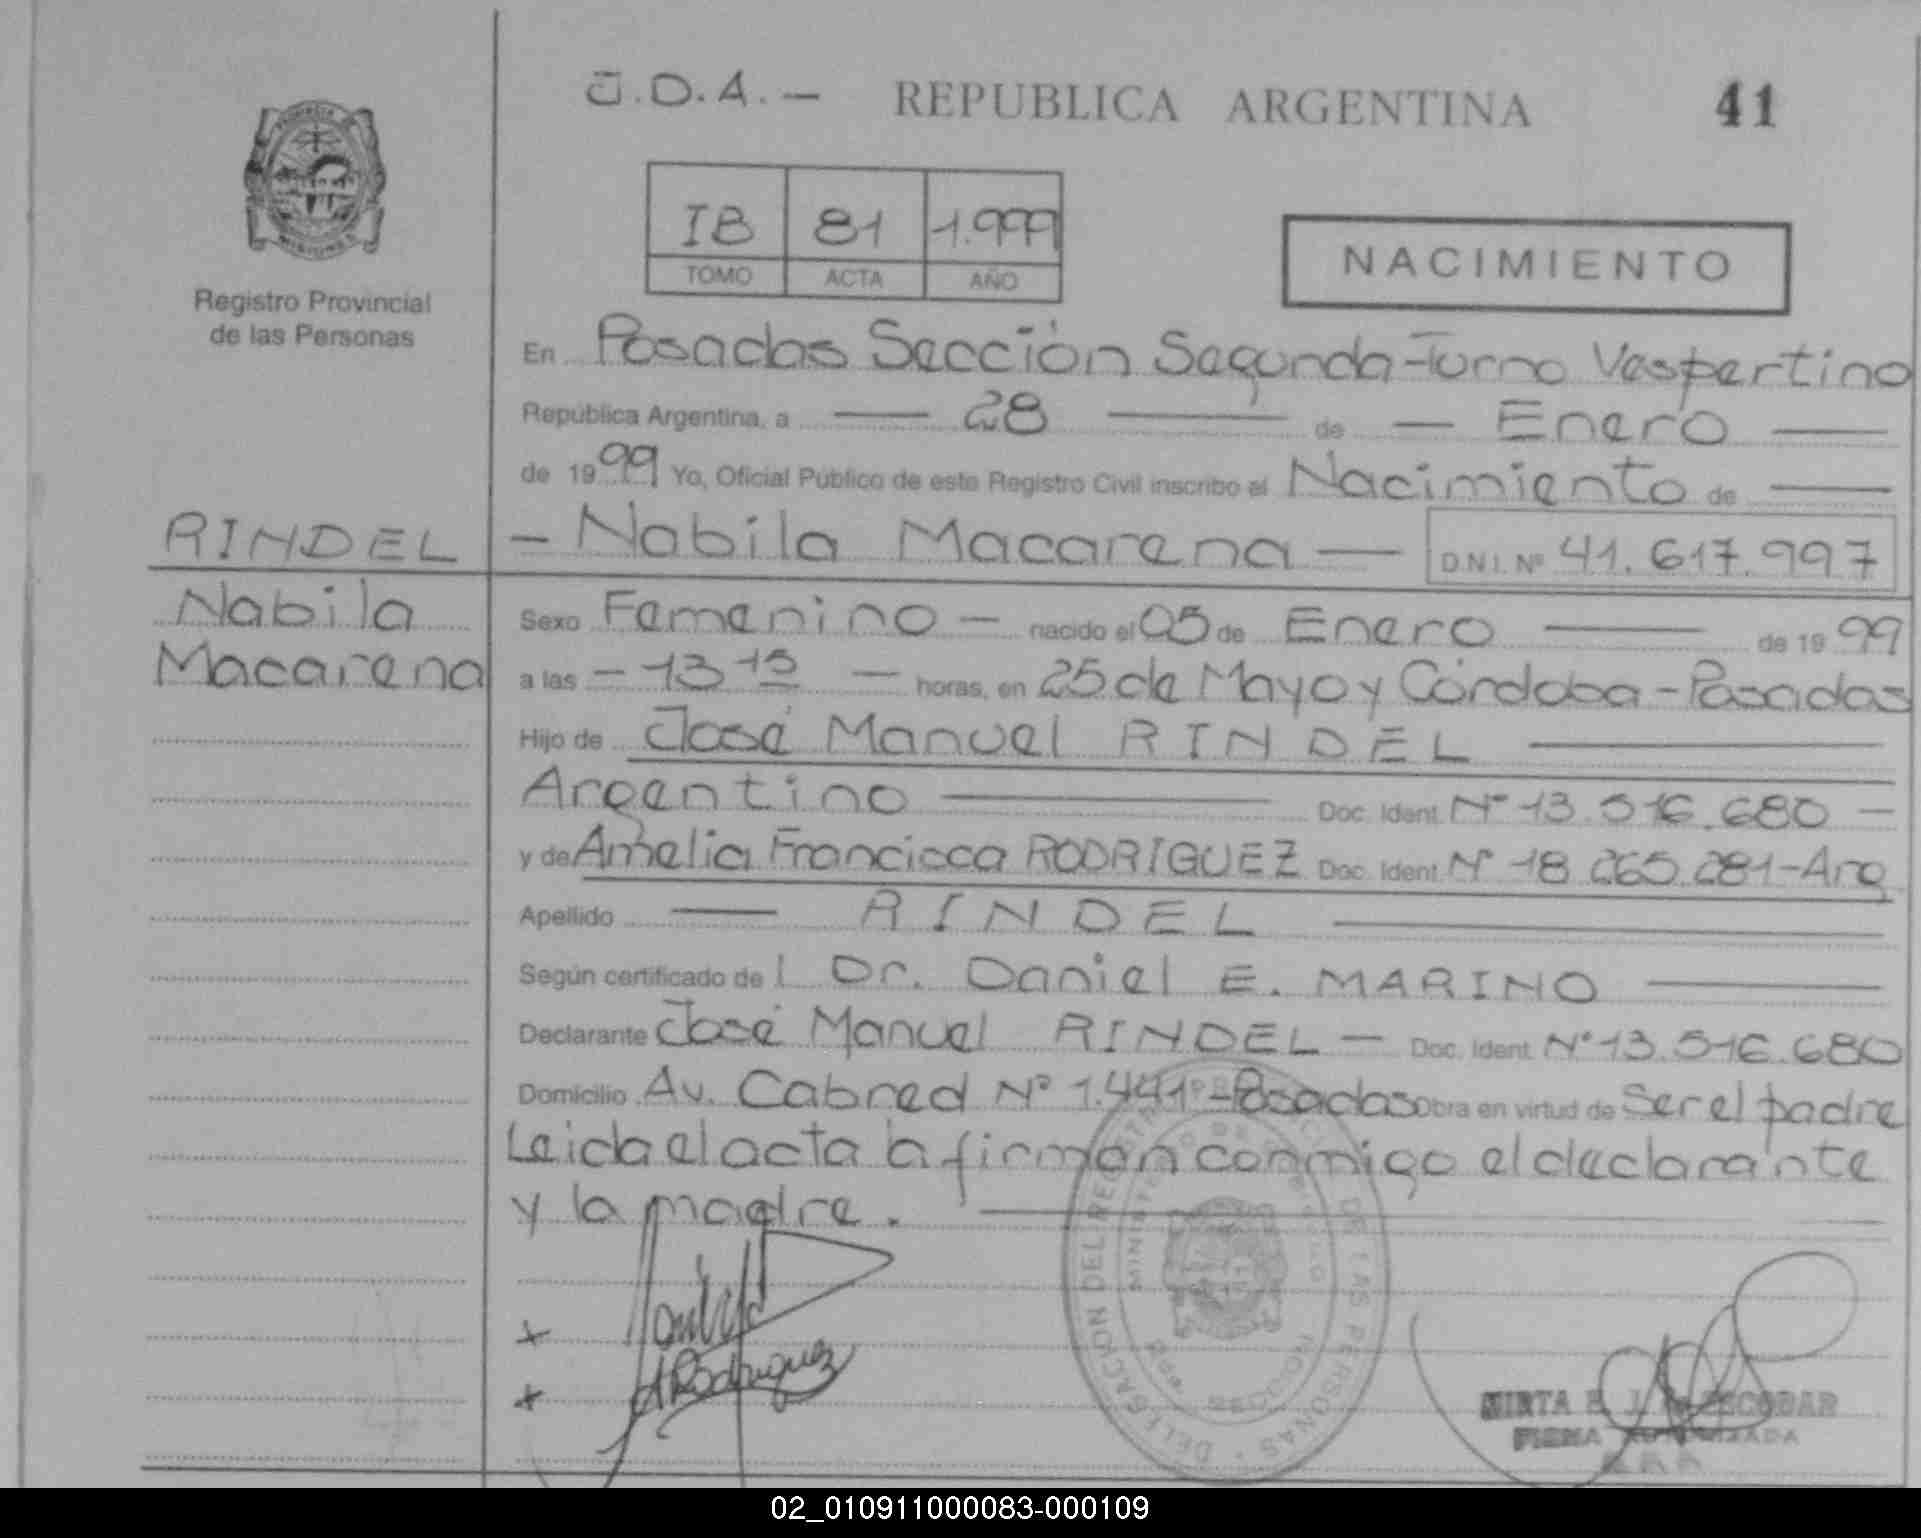 J.D.A.— REPUBLICA ARGENTINA 41
IB 81 1.999
TOMO ACTA AÑO
NACIMIENTO
Registro Provincial
de las Personas
En Posadas Sección Segunda-Turno Vespertino
República Argentina, a — 28 — de — Enero —
de 1999 Yo, Oficial Público de este Registro Civil inscribo el Nacimiento de —
RINDEL
— Nabila Macarena — D.N.I. Nº 41.617.997
Nabila
Macarena
Sexo Femenino — nacido el 05 de Enero — de 1999
a las — 13 15 — horas, en 25 de Mayo y Córdoba - Posadas
Hijo de José Manuel RINDEL —
Argentino — Doc. Ident. Nº 13.516.680 —
y de Amelia Francisca RODRIGUEZ Doc. Ident. Nº 18.265.281-Arg
Apellido — RINDEL —
Según certificado de l Dr. Daniel E. MARINO —
Declarante José Manuel RINDEL — Doc. Ident. Nº 13.516.680
Domicilio Av. Cabred Nº 1.441-Posadas Obra en virtud de Ser el padre
Leida el acta la firman conmigo el declarante
y la madre. —
DELEGACION DEL REGISTRO PROVINCIAL DE LAS PERSONAS
MINISTERIO DE GOBIERNO
ARodriguez
MIRTA E. J. de ESCOBAR
FIRMA AUTORIZADA
02_010911000083-000109